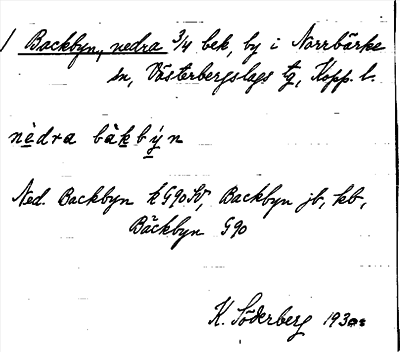 Backbyn, nedra 3/4 bek, by i Norrbärke
sn, Västerbergslags tg, Kopp. l.
nèdra bàkbýn
Ned. Backbyn k G90 SV, Backbyn jb, kb,
Bäckbyn G90
K. Söderberg 1930